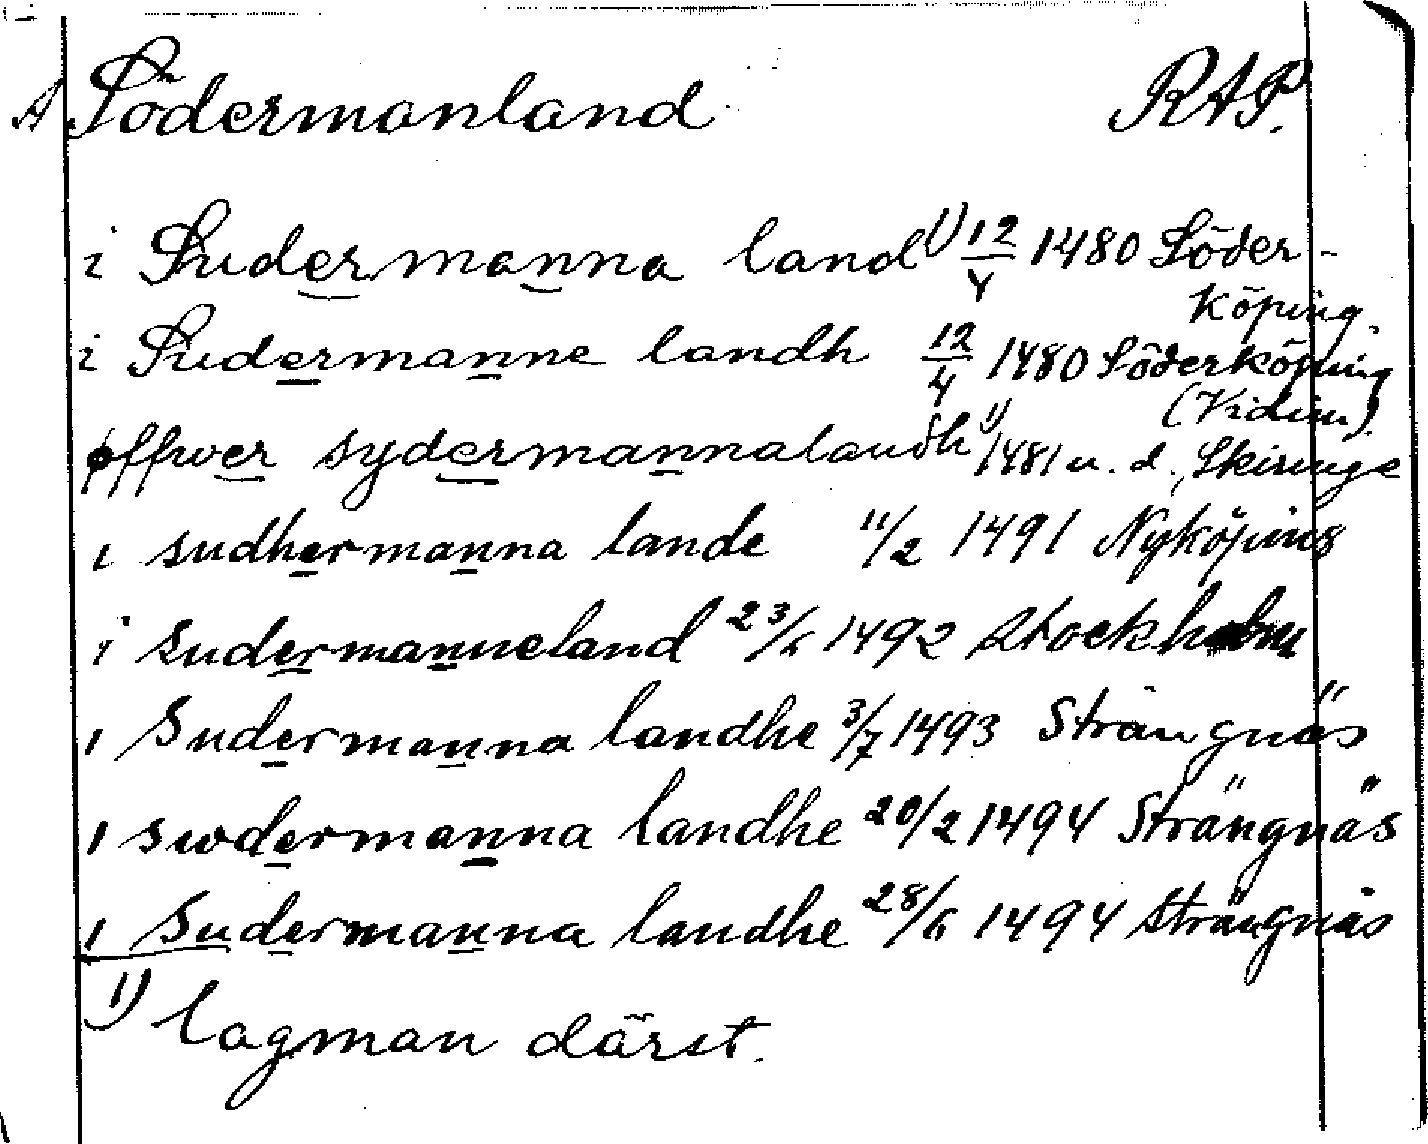 A Södermanland RAP.
i Sudermanna land 1) 12/4 1480 Söder-
köping.
i Sudermanne landh 12/4 1480 Söderköping
(Vidim.)
øffwer sydermannalandh 1) 1481 u. d., Skiringe
i sudhermanna lande 11/2 1491 Nyköping
i sudermanneland 23/6 1492 Stockholm
i Sudermanna landhe 3/7 1493 Strängnäs
i swdermanna landhe 20/2 1494 Strängnäs
i Sudermanna landhe 28/6 1494 Strängnäs
1) lagman därst.